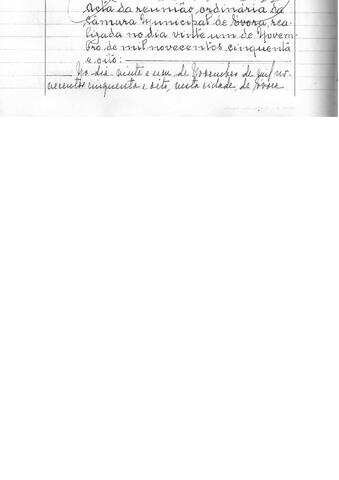 Acta da reunião ordinária da
Câmara Municipal de Evora, rea-
lizada no dia vinte um de Novem-
bro de mil novecentos cinquenta
e oito:
No dia vinte e um de Novembro de mil no-
vecentos cinquenta e oito, nesta cidade de Evora